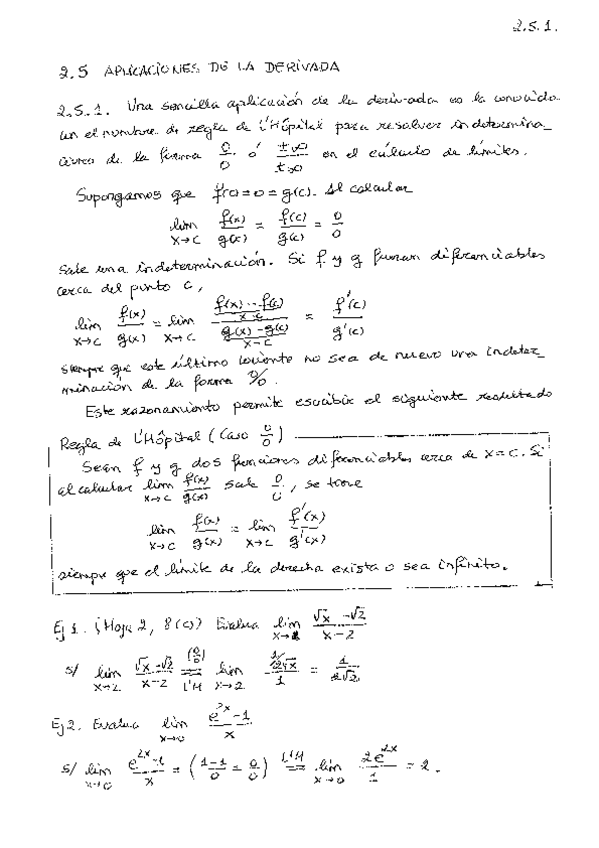 2.5.1.
2.5 APLICACIONES DE LA DERIVADA
2.5.1. Una sencilla aplicación de la derivada es la conocida
con el nombre de regla de L'Hôpital para resolver indetermina_
ciones de la forma 0/0 ó ±∞/±∞ en el cálculo de límites.
Supongamos que f(c)=0=g(c). Al calcular
lim x→c f(x)/g(x) = f(c)/g(c) = 0/0
sale una indeterminación. Si f y g fueran diferenciables
cerca del punto c,
lim x→c f(x)/g(x) = lim x→c (f(x)-f(c)/x-c)/(g(x)-g(c)/x-c) = f'(c)/g'(c)
siempre que este último cociente no sea de nuevo una indeter_
minación de la forma 0/0.
Este razonamiento permite escribir el siguiente resultado
Regla de L'Hôpital (Caso 0/0)
Sean f y g dos funciones diferenciables cerca de x=c. Si
al calcular lim x→c f(x)/g(x) sale 0/0, se tiene
lim x→c f(x)/g(x) = lim x→c f'(x)/g'(x)
siempre que el límite de la derecha exista o sea infinito.
Ej 1. (Hoja 2, 8(c)) Evalua lim x→2 √x-√2/x-2
s/ lim x→2 √x-√2/x-2 =(0/0) L'H lim x→2 (1/2√x)/1 = 1/2√2
Ej 2. Evalua lim x→0 e^2x-1/x
s/ lim x→0 e^2x-1/x = (1-1/0 = 0/0) =L'H lim x→0 2e^2x/1 = 2.